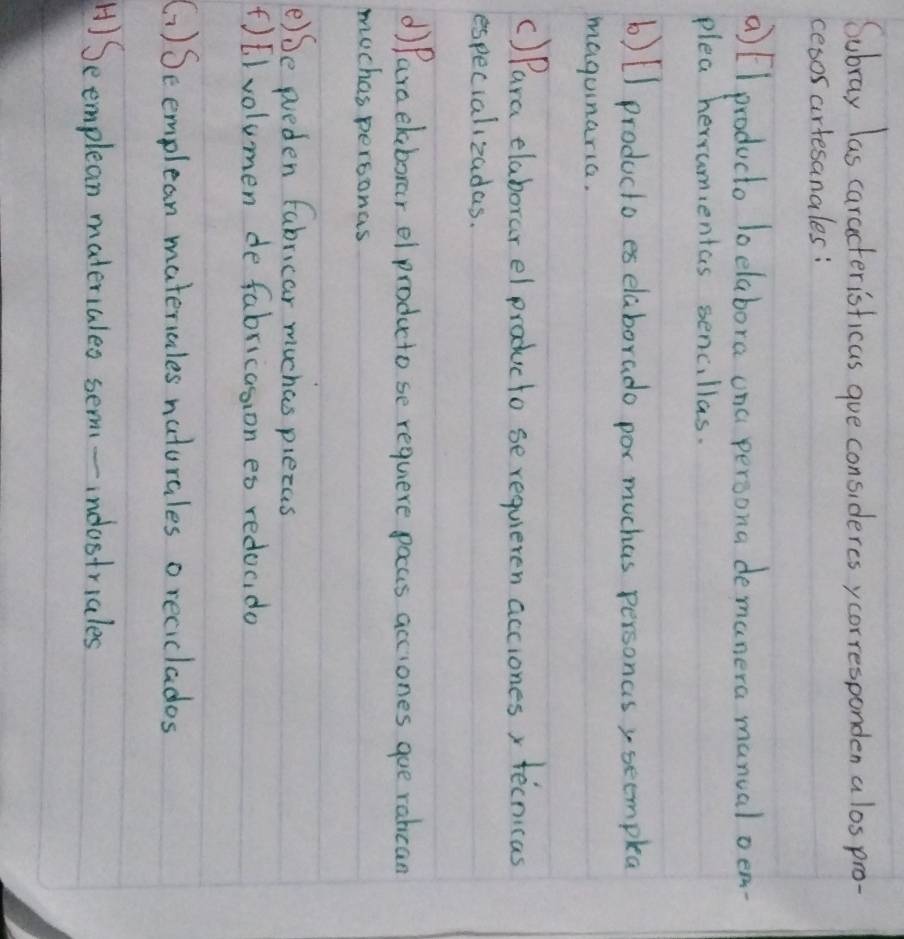 Subray las características que consideres y corresponden a los pro-
cesos artesanales:
a) El producto lo elabora una persona de manera manual o em-
plea herramientas sencillas.
b) El producto es elaborado por muchas personas y se emplea
maquinaria.
c) Para elaborar el producto se requieren acciones y técnicas
especializadas.
d) Para elaborar el producto se requiere pocas acciones que ralican
muchas personas
e) Se pueden fabricar muchas piezas
f) El volumen de fabricasion es reducido
G) Se emplean materiales naturales o reciclados
H) Se emplean materiales semi-industriales